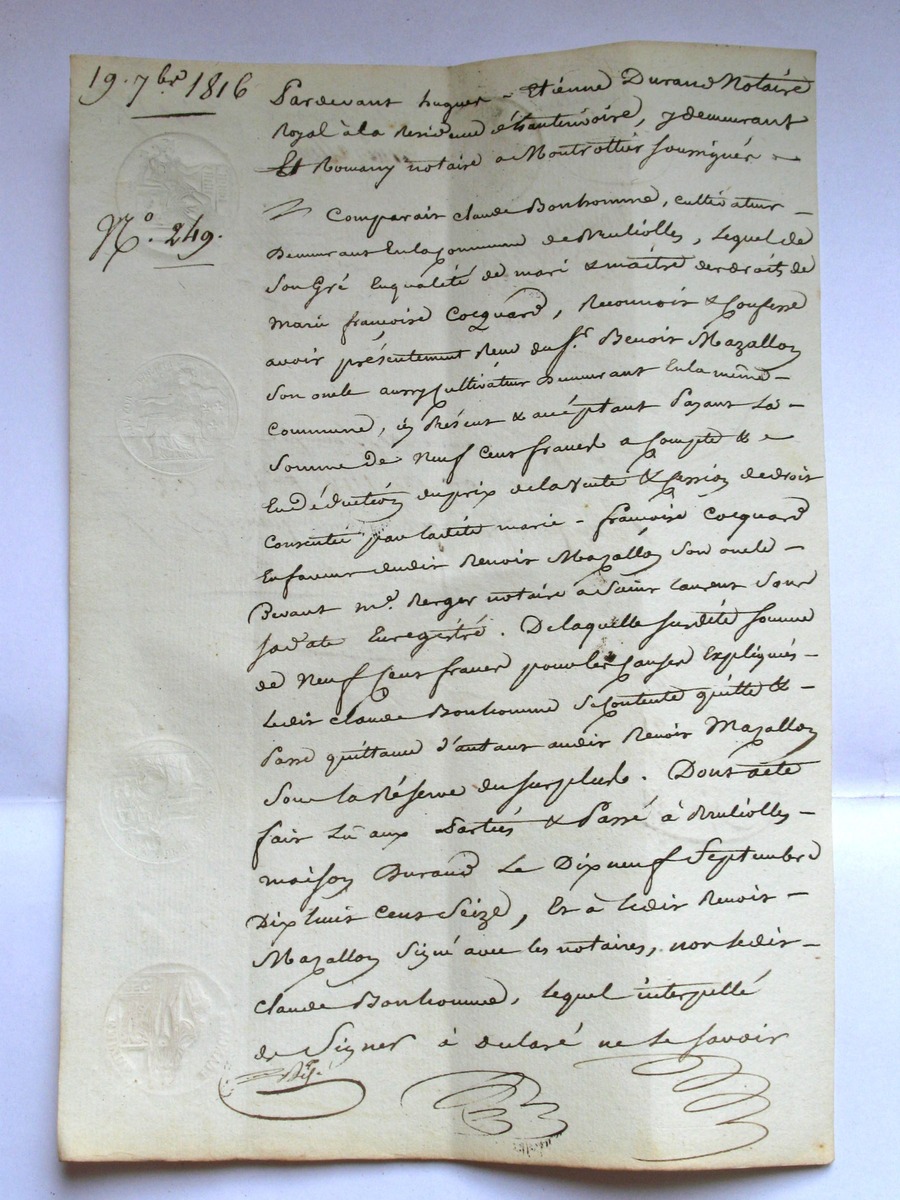 19. 7bre 1816
No. 249.
Pardevant hugues - Etiénne Durand Notaire
Royal à la Residence, y demeurant
Et Romany notaire a Montrottier soussignés -
Comparait claude Bonhomme, cultivateur -
Demeurant En la Commune de Brulliolles, lequel de
son Gré En qualité de mari & maitre des droits de
Marie françoise Cocquard, Reconnoit & Confesse
avoir présentement Reçu du Sr. Benoit Mazallon
son oncle aussy Cultivateur Demeurant En la même -
Commune, icy Présent & acceptant Payant La -
Somme De Neuf Cent francs a Compte & -
En déduction du prix de la Vente & Cession de droit
Consentie par laditte marie - françoise Cocquard
En faveur dudit Benoit Mazallon son oncle -
Devant me. Berger notaire a Saint Laurent Sous
sa date Enregistré. De laquelle susdite somme
de Neuf Cent francs pour les Causes Expliqués -
Ledit claude Bonhomme se Contente quitte & -
Passe quittance d'autant audit Benoit Mazallon
Sous la Réserve du surplus. Dont acte
fait Lu aux Parties & Passé à Brulliolles -
maison Durand Le Dix neuf Septembre
Dix huit Cent Seize, Et à ledit Benoit -
Mazallon Signé avec les notaires, non ledit -
Claude Bonhomme, lequel interpellé
de Signer à declaré ne le savoir